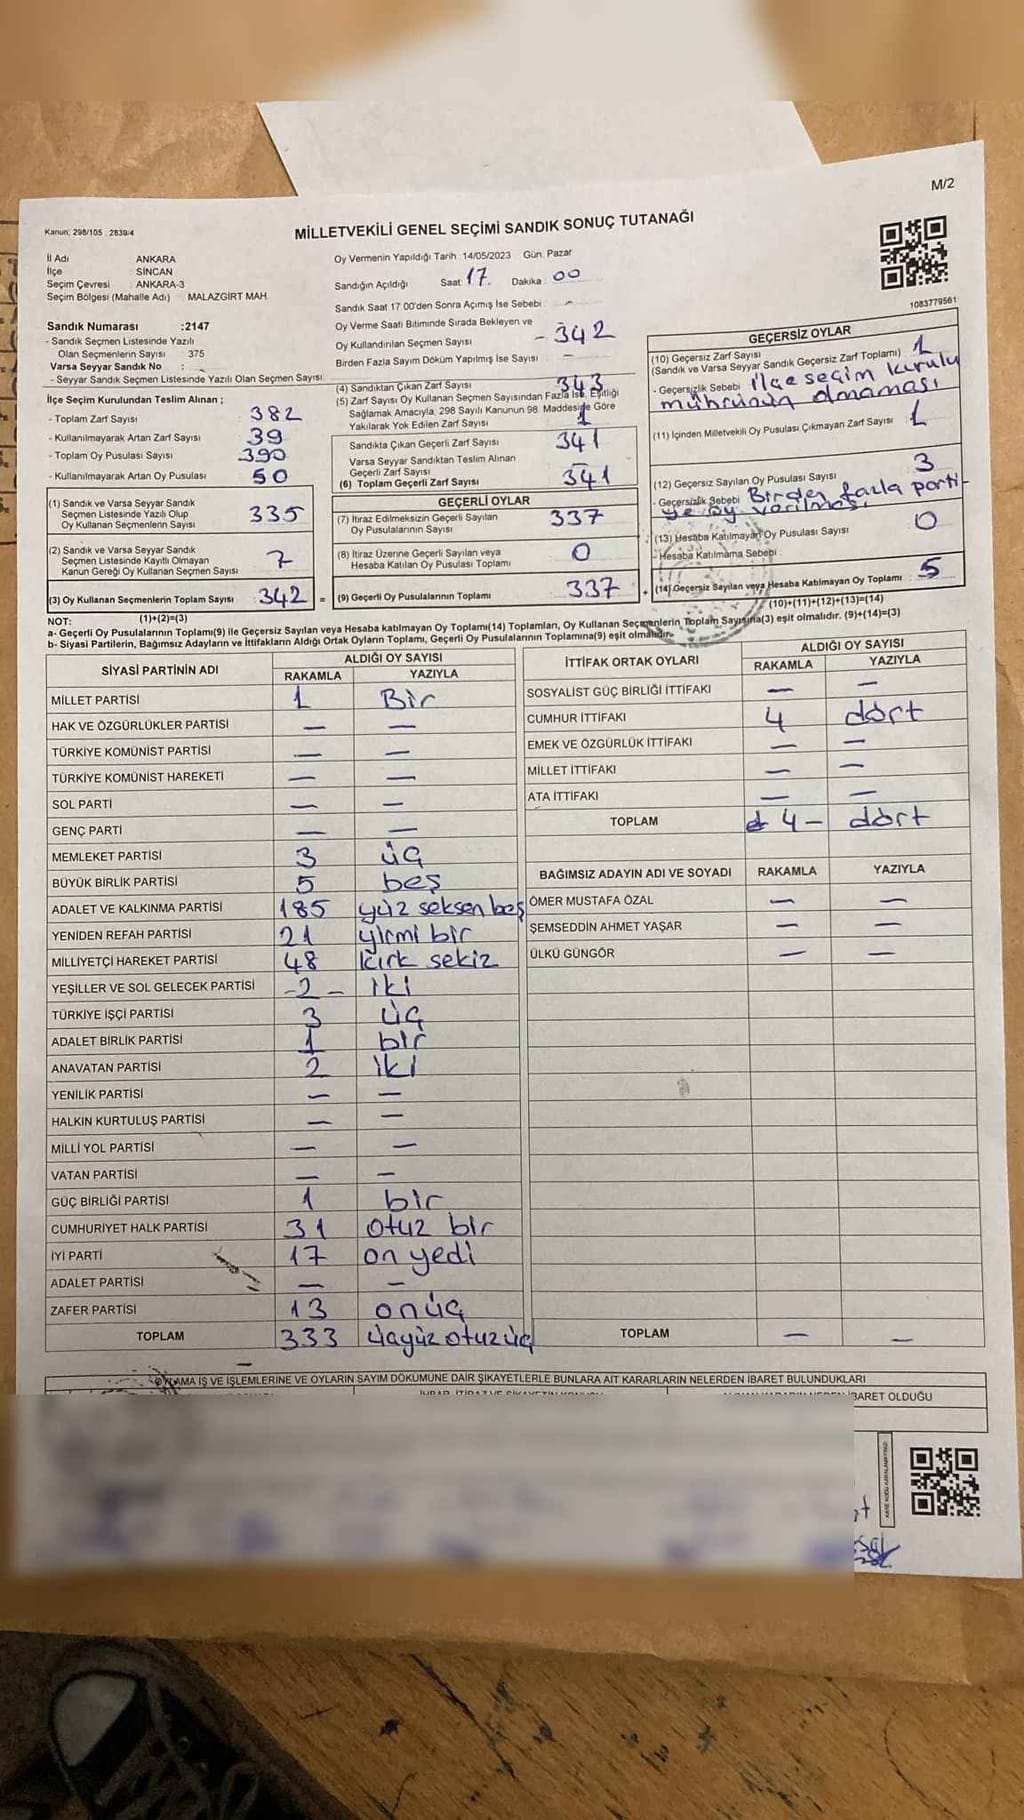 M/2
Kanun: 298/105 2839/4
MİLLETVEKİLİ GENEL SEÇİMİ SANDIK SONUÇ TUTANAĞI
İl Adı ANKARA
İlçe SİNCAN
Seçim Çevresi : ANKARA-3
Seçim Bölgesi (Mahalle Adı) MALAZGİRT MAH.
Sandık Numarası :2147
- Sandık Seçmen Listesinde Yazılı
Olan Seçmenlerin Sayısı : 375
Varsa Seyyar Sandık No :
- Seyyar Sandık Seçmen Listesinde Yazılı Olan Seçmen Sayısı:
İlçe Seçim Kurulundan Teslim Alınan ;
- Toplam Zarf Sayısı 382
- Kullanılmayarak Artan Zarf Sayısı 39
- Toplam Oy Pusulası Sayısı 390
- Kullanılmayarak Artan Oy Pusulası 50
(1) Sandık ve Varsa Seyyar Sandık
Seçmen Listesinde Yazılı Olup
Oy Kullanan Seçmenlerin Sayısı 335
(2) Sandık ve Varsa Seyyar Sandık
Seçmen Listesinde Kayıtlı Olmayan
Kanun Gereği Oy Kullanan Seçmen Sayısı 7
(3) Oy Kullanan Seçmenlerin Toplam Sayısı 342 =
(1)+(2)=(3)
Oy Vermenin Yapıldığı Tarih : 14/05/2023 Gün: Pazar
Sandığın Açıldığı Saat: 17. Dakika : 00
Sandık Saat 17.00'den Sonra Açımış İse Sebebi : -
Oy Verme Saati Bitiminde Sırada Bekleyen ve
Oy Kullandırılan Seçmen Sayısı - 342
Birden Fazla Sayım Döküm Yapılmış İse Sayısı -
(4) Sandıktan Çıkan Zarf Sayısı 343
(5) Zarf Sayısı Oy Kullanan Seçmen Sayısından Fazla İse, Eşitliği
Sağlamak Amacıyla, 298 Sayılı Kanunun 98. Maddesine Göre
Yakılarak Yok Edilen Zarf Sayısı 1
Sandıkta Çıkan Geçerli Zarf Sayısı 341
Varsa Seyyar Sandıktan Teslim Alınan
Geçerli Zarf Sayısı -
(6) Toplam Geçerli Zarf Sayısı 341
GEÇERLİ OYLAR
(7) İtiraz Edilmeksizin Geçerli Sayılan
Oy Pusulalarının Sayısı 337
(8) İtiraz Üzerine Geçerli Sayılan veya
Hesaba Katılan Oy Pusulası Toplamı 0
(9) Geçerli Oy Pusulalarının Toplamı 337 +
1083779561
GEÇERSİZ OYLAR
(10) Geçersiz Zarf Sayısı
(Sandık ve Varsa Seyyar Sandık Geçersiz Zarf Toplamı) 1
- Geçersizlik Sebebi İlçe seçim kurulu
mührünün olmaması
(11) İçinden Milletvekili Oy Pusulası Çıkmayan Zarf Sayısı 1
(12) Geçersiz Sayılan Oy Pusulası Sayısı 3
- Geçersizlik Sebebi Birden fazla parti-
ye oy verilmesi
(13) Hesaba Katılmayan Oy Pusulası Sayısı 0
- Hesaba Katılmama Sebebi
(14) Geçersiz Sayılan veya Hesaba Katılmayan Oy Toplamı 5
(10)+(11)+(12)+(13)=(14)
NOT:
a- Geçerli Oy Pusulalarının Toplamı(9) ile Geçersiz Sayılan veya Hesaba katılmayan Oy Toplamı(14) Toplamları, Oy Kullanan Seçmenlerin Toplam Sayısına(3) eşit olmalıdır. (9)+(14)=(3)
b- Siyasi Partilerin, Bağımsız Adayların ve İttifakların Aldığı Ortak Oyların Toplamı, Geçerli Oy Pusulalarının Toplamına(9) eşit olmalıdır.
SİYASİ PARTİNİN ADI ALDIĞI OY SAYISI
RAKAMLA YAZIYLA
MİLLET PARTİSİ 1 Bir
HAK VE ÖZGÜRLÜKLER PARTİSİ — —
TÜRKİYE KOMÜNİST PARTİSİ — —
TÜRKİYE KOMÜNİST HAREKETİ — —
SOL PARTİ — —
GENÇ PARTİ — —
MEMLEKET PARTİSİ 3 üç
BÜYÜK BİRLİK PARTİSİ 5 beş
ADALET VE KALKINMA PARTİSİ 185 yüz seksen beş
YENİDEN REFAH PARTİSİ 21 yirmi bir
MİLLİYETÇİ HAREKET PARTİSİ 48 kırk sekiz
YEŞİLLER VE SOL GELECEK PARTİSİ -2- iki
TÜRKİYE İŞÇİ PARTİSİ 3 üç
ADALET BİRLİK PARTİSİ 1 bir
ANAVATAN PARTİSİ 2 iki
YENİLİK PARTİSİ — —
HALKIN KURTULUŞ PARTİSİ — —
MİLLİ YOL PARTİSİ — —
VATAN PARTİSİ — —
GÜÇ BİRLİĞİ PARTİSİ 1 bir
CUMHURİYET HALK PARTİSİ 31 otuz bir
İYİ PARTİ 17 on yedi
ADALET PARTİSİ — —
ZAFER PARTİSİ 13 onüç
TOPLAM 333 üçyüz otuz üç
İTTİFAK ORTAK OYLARI ALDIĞI OY SAYISI
RAKAMLA YAZIYLA
SOSYALİST GÜÇ BİRLİĞİ İTTİFAKI — —
CUMHUR İTTİFAKI 4 dört
EMEK VE ÖZGÜRLÜK İTTİFAKI — —
MİLLET İTTİFAKI — —
ATA İTTİFAKI — —
TOPLAM 4 - dört
BAĞIMSIZ ADAYIN ADI VE SOYADI RAKAMLA YAZIYLA
ÖMER MUSTAFA ÖZAL — —
ŞEMSEDDİN AHMET YAŞAR — —
ÜLKÜ GÜNGÖR — —
TOPLAM — —
OYLAMA İŞ VE İŞLEMLERİNE VE OYLARIN SAYIM DÖKÜMÜNE DAİR ŞİKAYETLERLE BUNLARA AİT KARARLARIN NELERDEN İBARET BULUNDUKLARI
İBARET OLDUĞU